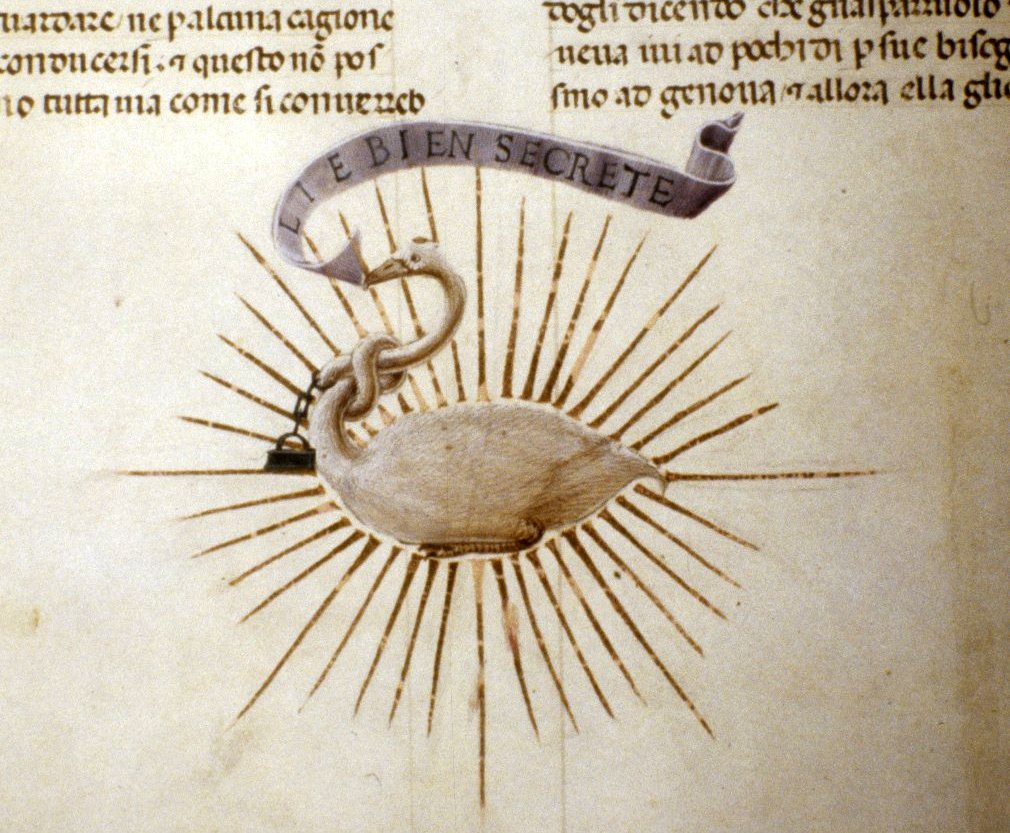 uardare / ne p alcuna cagione
conducersi. ⁊ questo nõ pos
no tutta uia come si conuerreb
togli dicendo che guasparruolo
ueua iui ad pochi di p sue bisog
fino ad genoua / ⁊ allora ella glie
LIE BIEN SECRETE